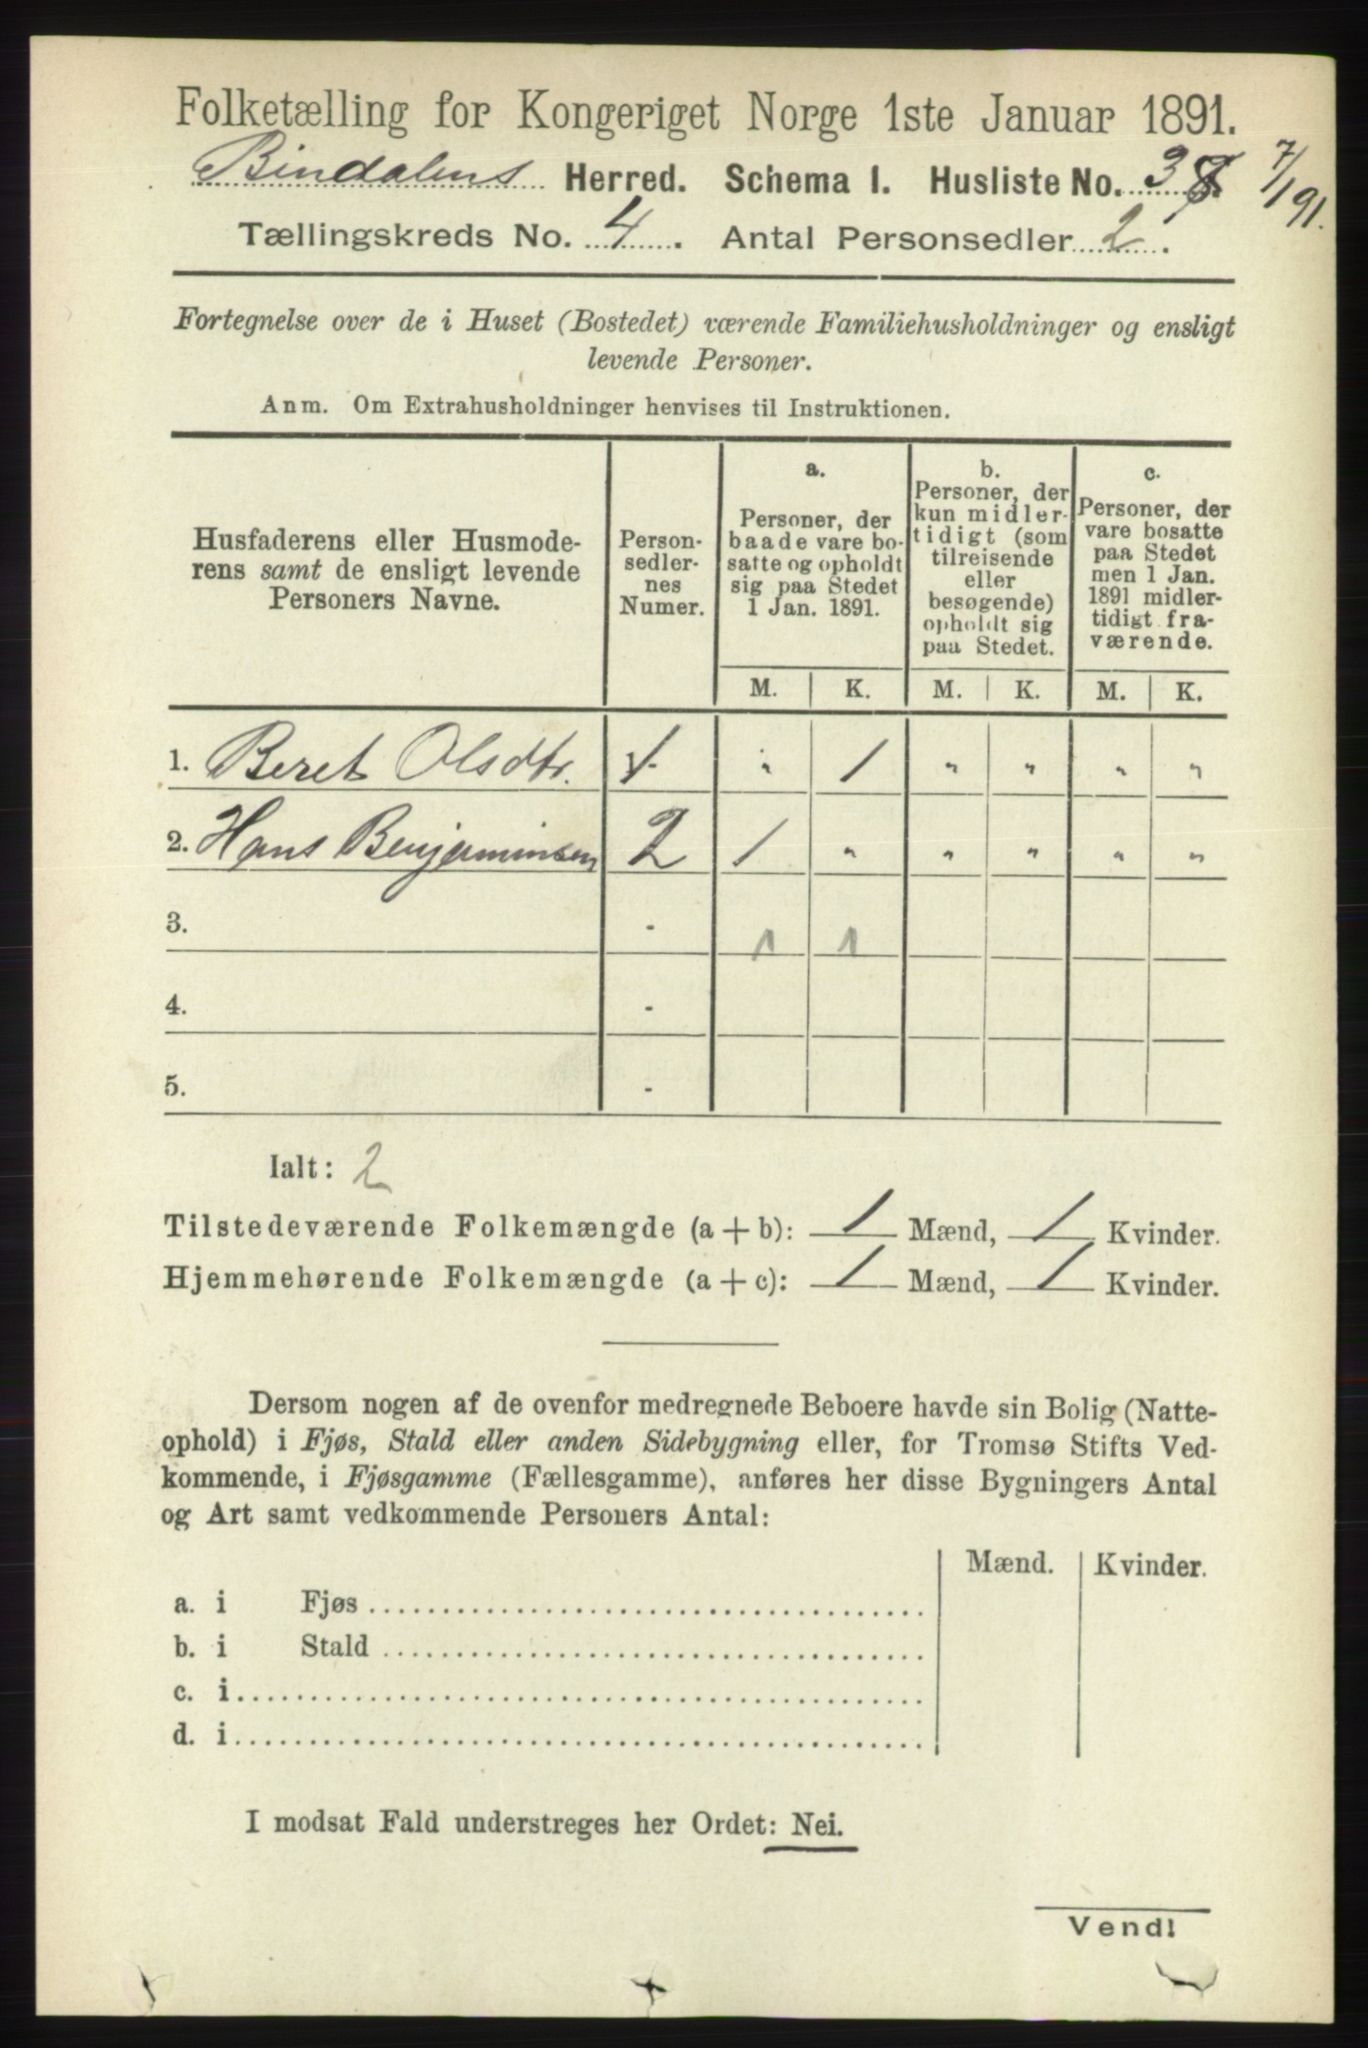 Folketælling for Kongeriget Norge 1ste Januar 1891.
Bindalens Herred. Schema I. Husliste No. 38 7/1 91.
Tællingskreds No. 4. Antal Personsedler 2.
Fortegnelse over de i Huset (Bostedet) værende Familiehusholdninger og ensligt
levende Personer.
Anm. Om Extrahusholdninger henvises til Instruktionen.
Husfaderens eller Husmode-
rens samt de ensligt levende
Personers Navne.
Person-
sedler-
nes
Numer.
a.
Personer, der
baade vare bo-
satte og opholdt
sig paa Stedet
1 Jan. 1891.
b.
Personer, der
kun midler-
tidigt (som
tilreisende
eller
besøgende)
opholdt sig
paa Stedet.
c.
Personer, der
vare bosatte
paa Stedet
men 1 Jan.
1891 midler-
tidigt fra-
værende.
M. K. M. K. M. K.
1. Beret Olsdtr. 1 " 1 " " " "
2. Hans Benjaminsen 2 1 " " " " "
3. - 1 1
4. -
5. -
Ialt: 2
Tilstedeværende Folkemængde (a + b): 1 Mænd, 1 Kvinder.
Hjemmehørende Folkemængde (a + c): 1 Mænd, 1 Kvinder.
Dersom nogen af de ovenfor medregnede Beboere havde sin Bolig (Natte-
ophold) i Fjøs, Stald eller anden Sidebygning eller, for Tromsø Stifts Ved-
kommende, i Fjøsgamme (Fællesgamme), anføres her disse Bygningers Antal
og Art samt vedkommende Personers Antal:
Mænd. Kvinder.
a. i Fjøs
b. i Stald
c. i
d. i
I modsat Fald understreges her Ordet: Nei.
Vend!